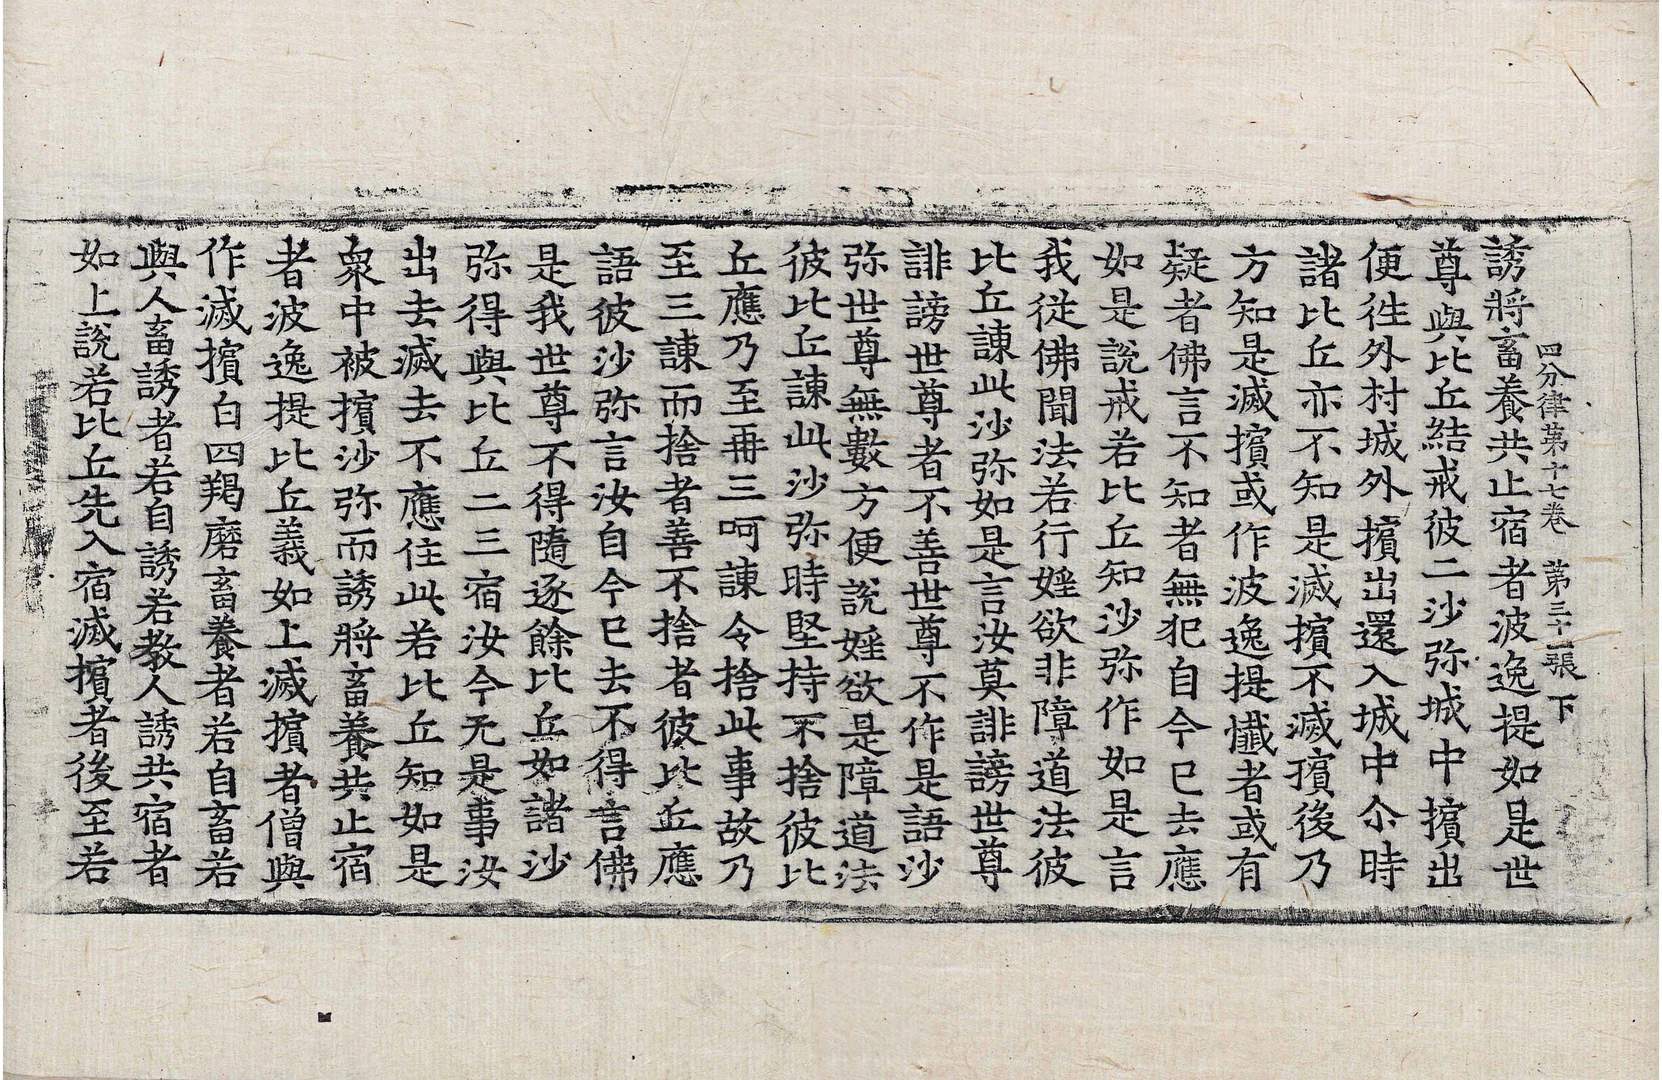 四分律第十七卷 第三十一張 下
誘將畜養共止宿者波逸提如是世
尊與比丘結戒彼二沙弥城中擯出
便徃外村城外擯出還入城中尒時
諸比丘亦不知是滅擯不滅擯後乃
方知是滅擯或作波逸提懺者或有
疑者佛言不知者無犯自今已去應
如是說戒若比丘知沙弥作如是言
我從佛聞法若行婬欲非障道法彼
比丘諫此沙弥如是言汝莫誹謗世尊
誹謗世尊者不善世尊不作是語沙
弥世尊無數方便說婬欲是障道法
彼比丘諫此沙弥時堅持不捨彼比
丘應乃至再三呵諫令捨此事故乃
至三諫而捨者善不捨者彼比丘應
語彼沙弥言汝自今已去不得言佛
是我世尊不得隨逐餘比丘如諸沙
弥得與比丘二三宿汝今无是事汝
出去滅去不應住此若比丘知如是
衆中被擯沙弥而誘將畜養共止宿
者波逸提比丘義如上滅擯者僧與
作滅擯白四羯磨畜養者若自畜若
與人畜誘者若自誘若教人誘共宿者
如上說若比丘先入宿滅擯者後至若